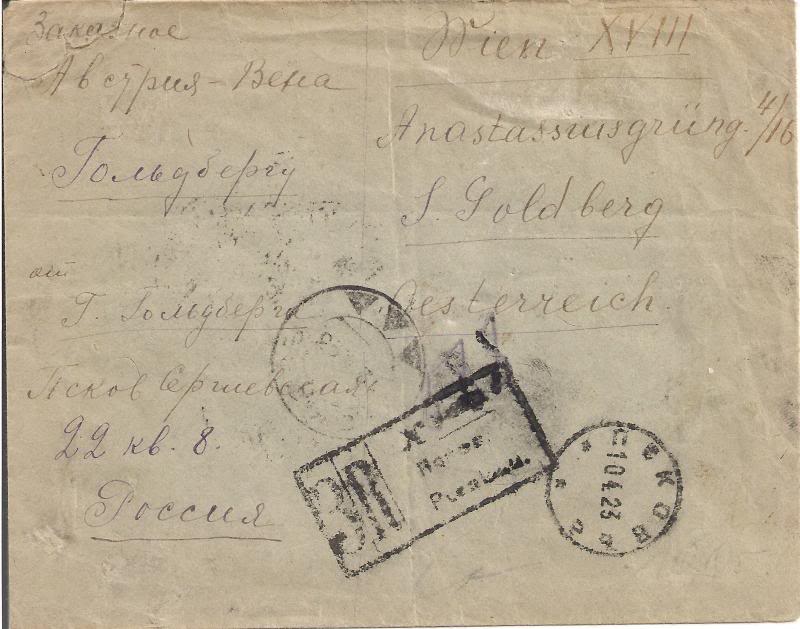 Заказное
Австрия-Вена
Гольдбергу
от
Г. Гольдберга
Псков Сергиевская
22 кв. 8.
Россия
Wien XVIII
Anastassiusgrüng. 4/16
S. Goldberg
Oesterreich
ЗП
ПСКОВ
10.4.23